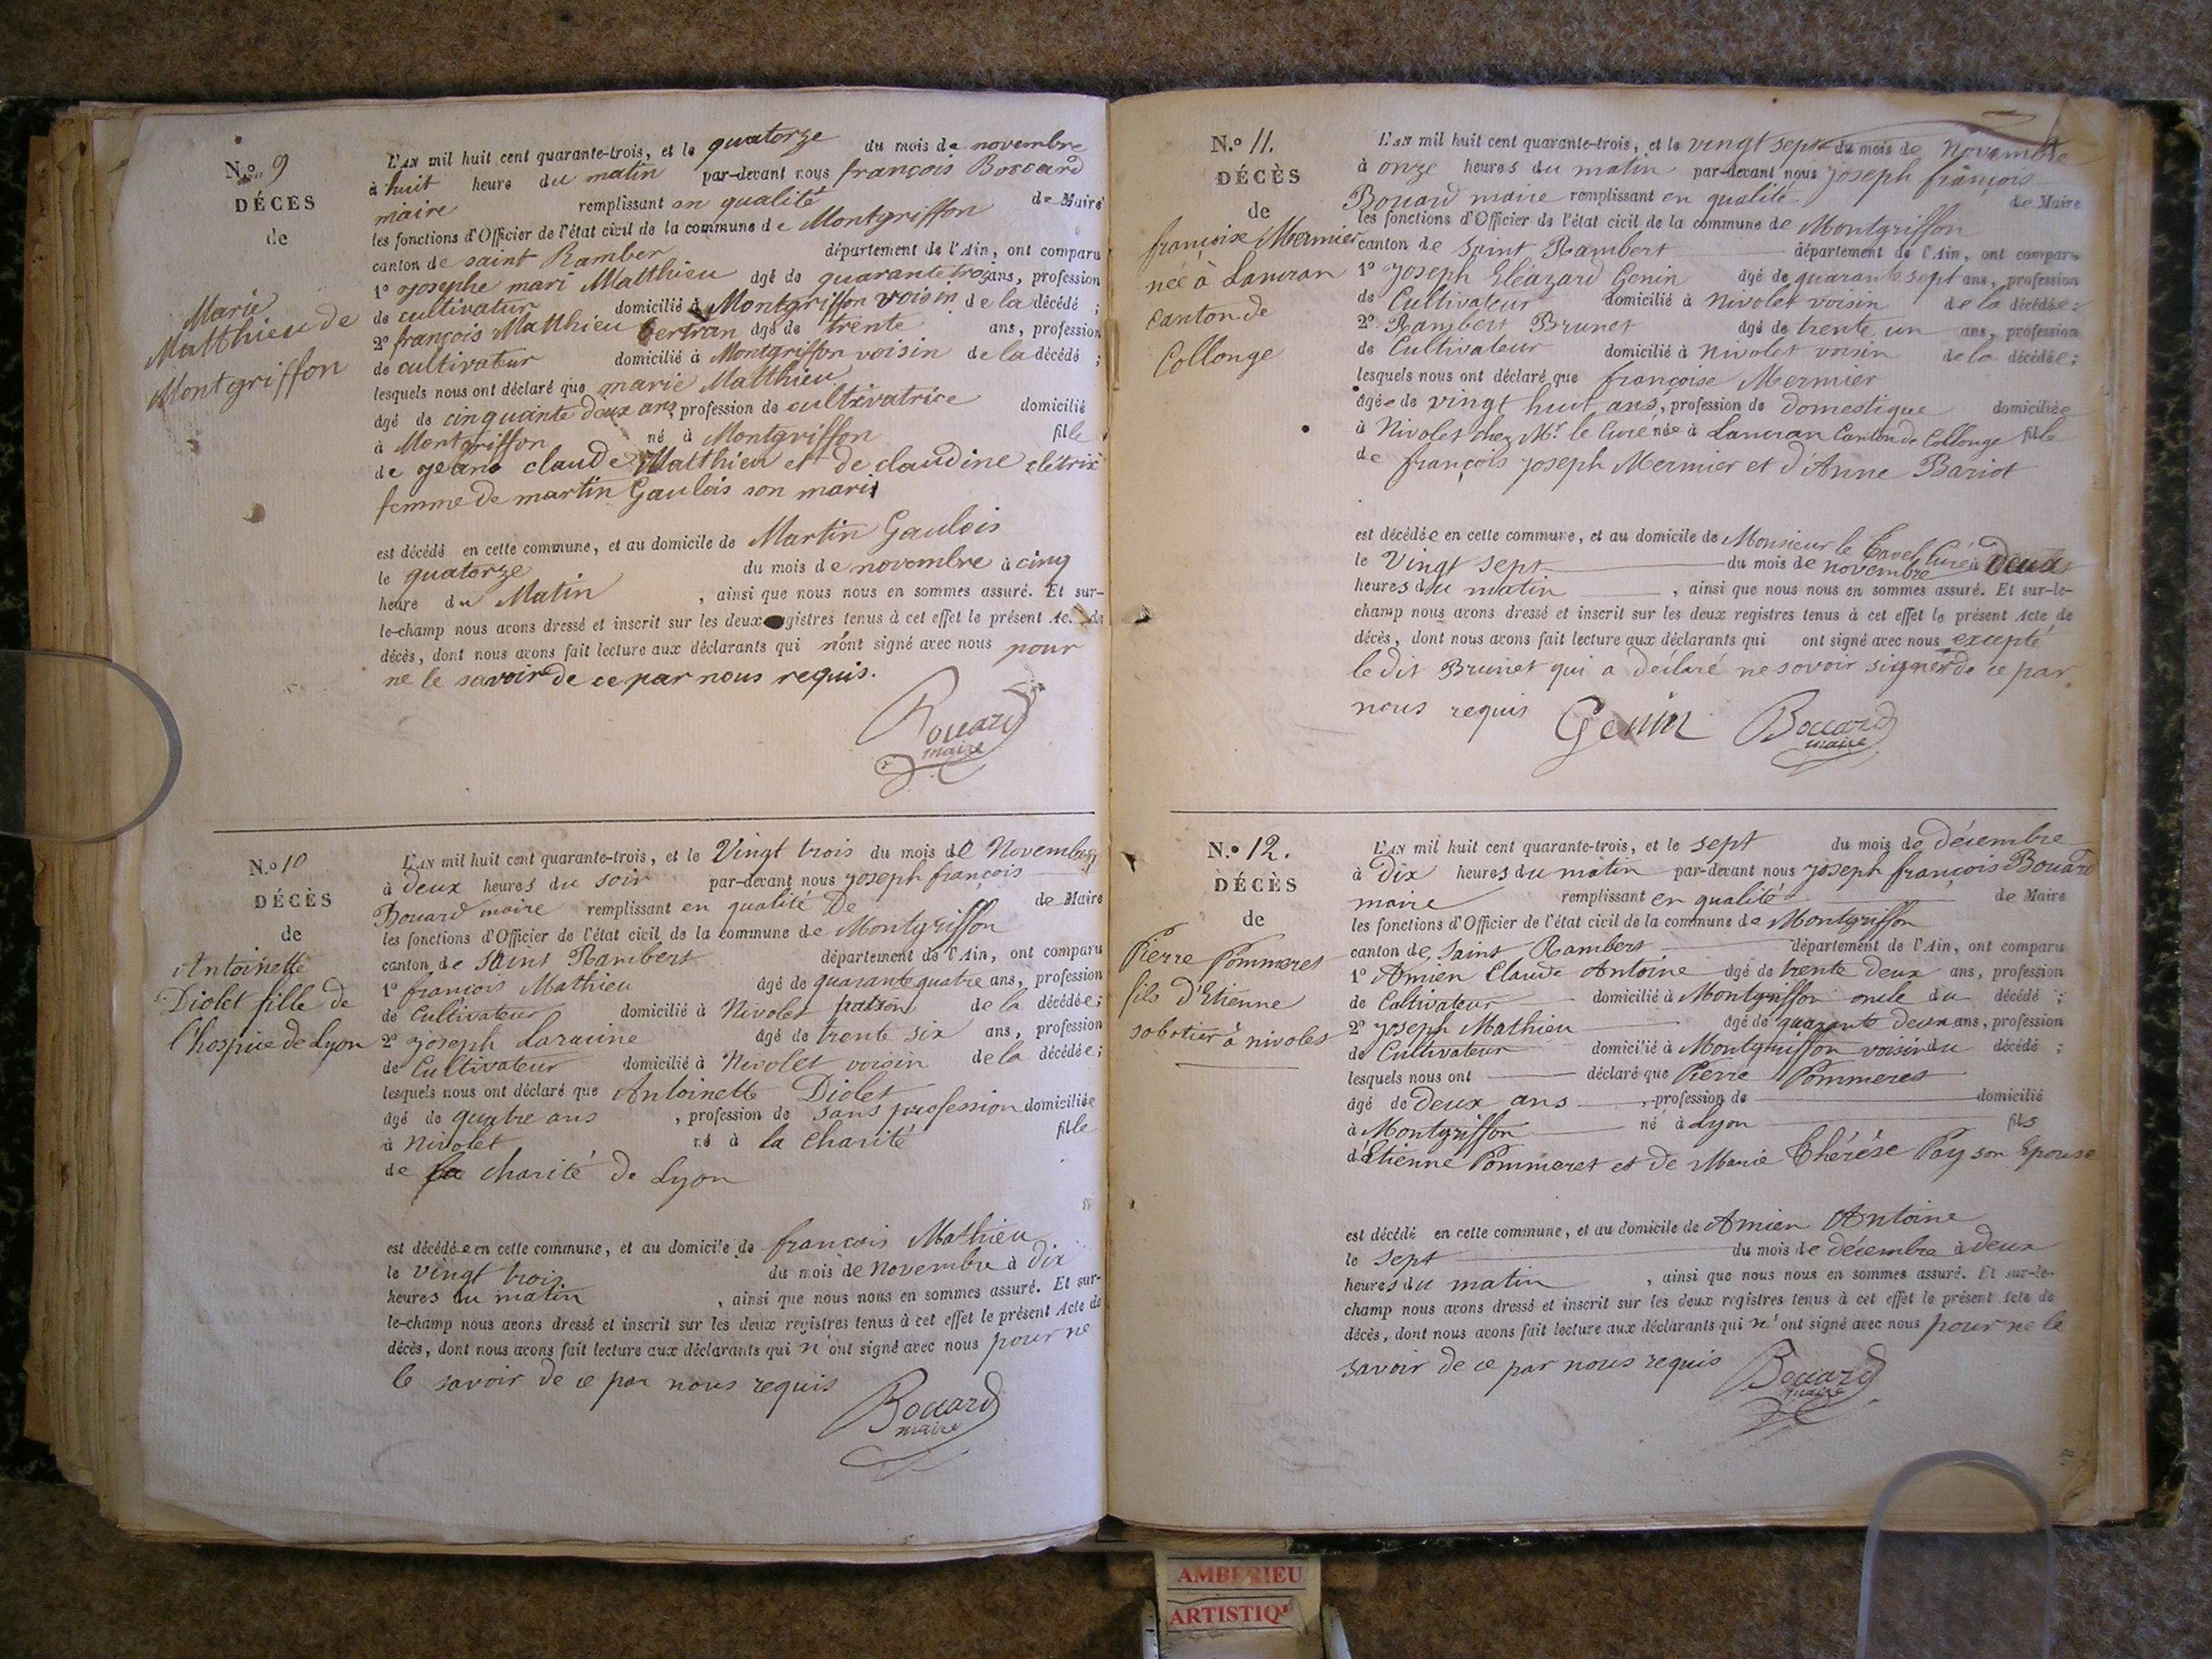 N.o 9
DÉCÈS
de
Marie
Matthieu de
Montgriffon
L'AN mil huit cent quarante-trois, et le quatorze du mois de novembre
à huit heure du matin par-devant nous françois Bouard
maire remplissant en qualité de Maire
les fonctions d'Officier de l'état civil de la commune de Montgriffon
canton de saint Ramber département de l'Ain, ont comparu
1o Josephe mari Matthieu agé de quarante trois ans, profession
de cultivatur domicilié à Montgriffon voisin de la décédé ;
2o françois Matthieu bertran agé de trente ans, profession
de cultivatur domicilié à Montgriffon voisin de la décédé ;
lesquels nous ont déclaré que marie Matthieu
agé de cinquante deux ans, profession de cultivatrice domicilié
à Montgriffon né à Montgriffon fille
de jeane claude Matthieu et de claudine
femme de martin Gaulois son mari
est décédé en cette commune, et au domicile de Martin Gaulois
le quatorze du mois de novembre à cinq
heure du Matin , ainsi que nous nous en sommes assuré. Et sur-
le-champ nous avons dressé et inscrit sur les deux registres tenus à cet effet le présent Acte de
décès, dont nous avons fait lecture aux déclarants qui n'ont signé avec nous pour
ne le savoir de ce par nous requis.
Bouard
maire
N.o 10
DÉCÈS
de
Antoinette
Diolet fille de
l'hospice de Lyon
L'AN mil huit cent quarante-trois, et le Vingt trois du mois de Novembre
à deux heures du soir par-devant nous joseph françois
Bouard maire remplissant en qualité De de Maire
les fonctions d'Officier de l'état civil de la commune de Montgriffon
canton de Saint Rambert département de l'Ain, ont comparu
1o françois Mathieu agé de quarante quatre ans, profession
de Cultivateur domicilié à Nivolet patron de la décédée ;
2o joseph Laracine agé de trente six ans, profession
de Cultivateur domicilié à Nivolet voisin de la décédée ;
lesquels nous ont déclaré que Antoinette Diolet
agé de quatre ans , profession de sans profession domiciliée
à Nivolet né à la charité fille
de la charité de Lyon
est décédée en cette commune, et au domicile de françois Mathieu
le vingt trois du mois de novembre à dix
heures du matin , ainsi que nous nous en sommes assuré. Et sur-
le-champ nous avons dressé et inscrit sur les deux registres tenus à cet effet le présent Acte de
décès, dont nous avons fait lecture aux déclarants qui n'ont signé avec nous pour ne
le savoir de ce par nous requis
Bouard
maire
N.o 11.
DÉCÈS
de
françoise Mermier
née à Lancran
canton de
Collonge
L'AN mil huit cent quarante-trois, et le vingt sept du mois de Novembre
à onze heures du matin par-devant nous joseph françois
Bouard maire remplissant en qualité de Maire
les fonctions d'Officier de l'état civil de la commune de Montgriffon
canton de Saint Rambert département de l'Ain, ont comparu
1o Joseph Eléazard Genin agé de quarante sept ans, profession
de Cultivateur domicilié à Nivolet voisin de la décédée ;
2o Rambert Brunet agé de trente un ans, profession
de Cultivateur domicilié à Nivolet voisin de la décédée ;
lesquels nous ont déclaré que françoise Mermier
agée de vingt huit ans, profession de domestique domiciliée
à Nivolet chez Mr. le Curé née à Lancran Canton de Collonge fille
de françois joseph Mermier et d'Anne Bariot
est décédée en cette commune, et au domicile de Monsieur le Curé
le Vingt sept du mois de novembre à Deux
heures du matin , ainsi que nous nous en sommes assuré. Et sur-le-
champ nous avons dressé et inscrit sur les deux registres tenus à cet effet le présent Acte de
décès, dont nous avons fait lecture aux déclarants qui ont signé avec nous excepté
le dit Brunet qui a déclaré ne savoir signer de ce par
nous requis Genin Bouard
maire
N.o 12.
DÉCÈS
de
Pierre Pommeret
fils d'Etienne
sabotier à nivolet
L'AN mil huit cent quarante-trois, et le sept du mois de décembre
à Dix heures du matin par-devant nous joseph françois Bouard
maire remplissant en qualité de Maire
les fonctions d'Officier de l'état civil de la commune de Montgriffon
canton de Saint Rambert département de l'Ain, ont comparu
1o Amien Claude Antoine agé de trente deux ans, profession
de Cultivateur domicilié à Montgriffon oncle du décédé ;
2o joseph Mathieu agé de quarante deux ans, profession
de Cultivateur domicilié à Montgriffon voisin du décédé ;
lesquels nous ont déclaré que Pierre Pommeret
agé de deux ans , profession de domicilié
à Montgriffon né à Lyon fils
d'Etienne Pommeret et de Marie Thérèse Pay son Epouse
est décédé en cette commune, et au domicile de Amien Antoine
le sept du mois de décembre à deux
heures du matin , ainsi que nous nous en sommes assuré. Et sur-le-
champ nous avons dressé et inscrit sur les deux registres tenus à cet effet le présent Acte de
décès, dont nous avons fait lecture aux déclarants qui n'ont signé avec nous pour ne le
savoir de ce par nous requis Bouard
maire
AMBERIEU
ARTISTIQ